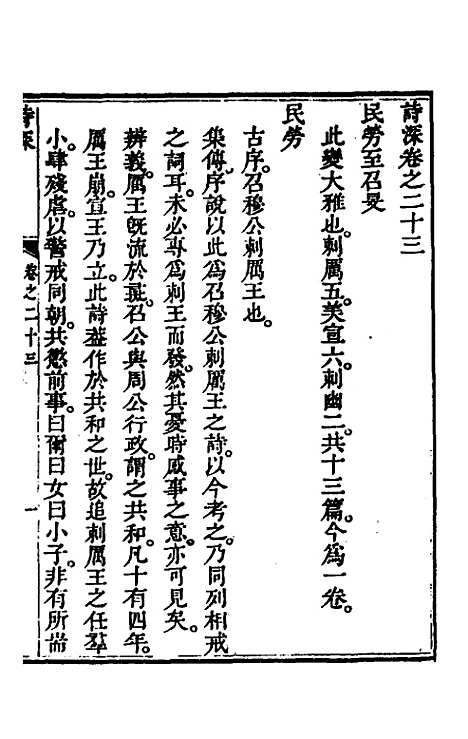 詩深卷之二十三
民勞至召旻
此變大雅也。刺厲五。美宣六。刺幽二。共十三篇。今爲一卷。
民勞
古序。召穆公刺厲王也。
集傳。序說以此爲召穆公刺厲王之詩。以今考之。乃同列相戒
之詞耳。未必專爲刺王而發。然其憂時感事之意。亦可見矣。
辨義。厲王旣流於彘。召公與周公行政。謂之共和。凡十有四年。
厲王崩。宣王乃立。此詩葢作於共和之世。故追刺厲王之任羣
小。肆殘虐。以警戒同朝。共懲前事。曰爾曰女曰小子。非有所耑
詩深
卷之二十三
一